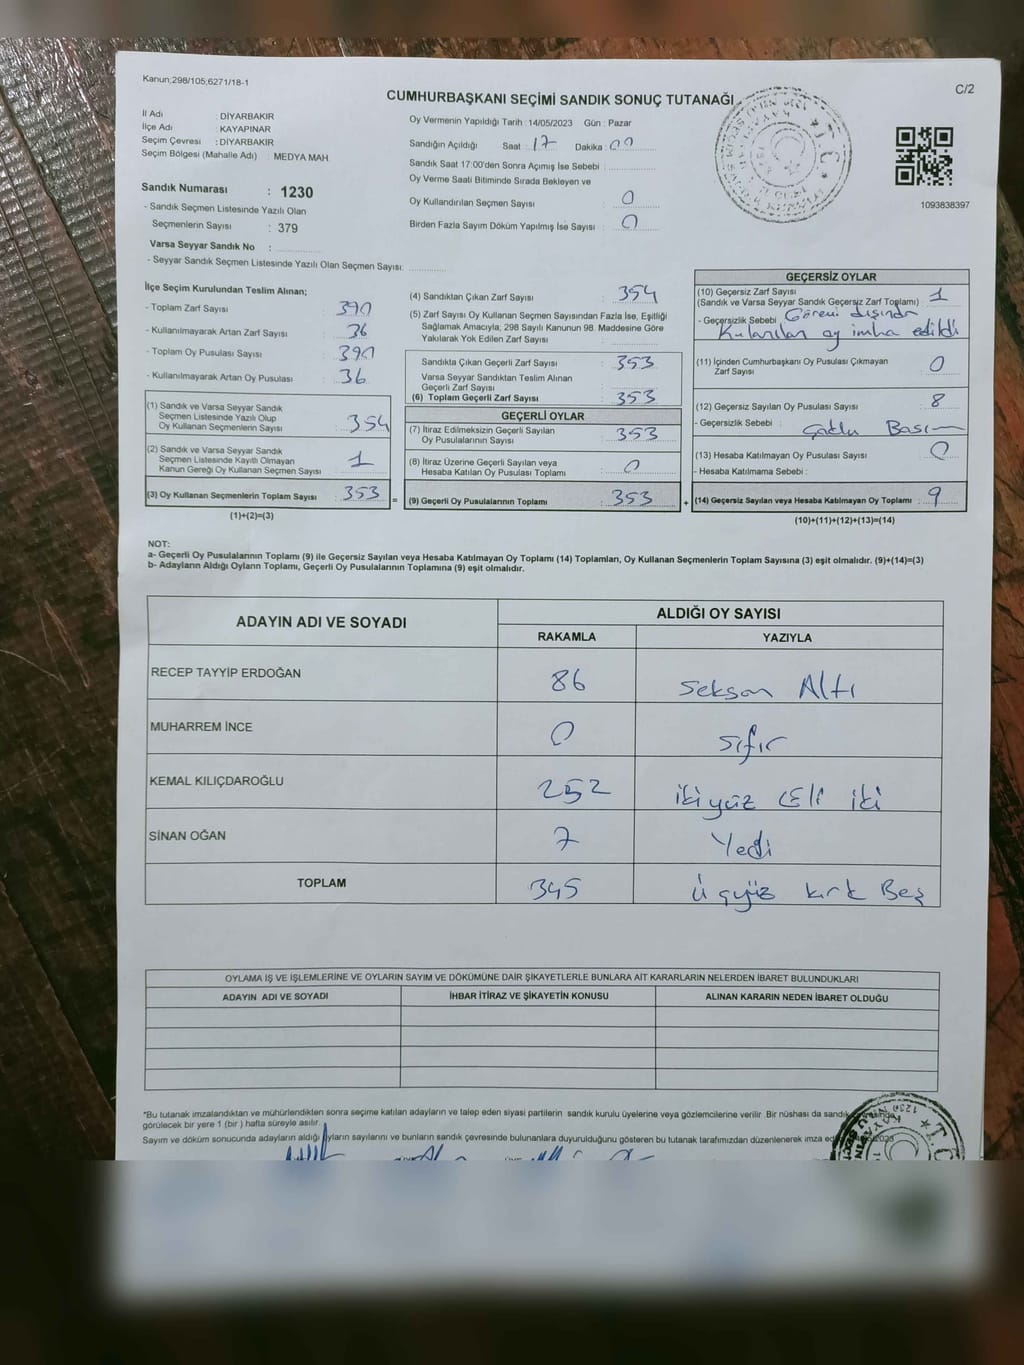 Kanun;298/105;6271/18-1
C/2
CUMHURBAŞKANI SEÇİMİ SANDIK SONUÇ TUTANAĞI
İl Adı : DİYARBAKIR
İlçe Adı : KAYAPINAR
Seçim Çevresi : DİYARBAKIR
Seçim Bölgesi (Mahalle Adı) : MEDYA MAH
Sandık Numarası : 1230
- Sandık Seçmen Listesinde Yazılı Olan
Seçmenlerin Sayısı : 379
Varsa Seyyar Sandık No :
- Seyyar Sandık Seçmen Listesinde Yazılı Olan Seçmen Sayısı:
Oy Vermenin Yapıldığı Tarih : 14/05/2023 Gün : Pazar
Sandığın Açıldığı Saat : 17 Dakika : 00
Sandık Saat 17:00'den Sonra Açımış İse Sebebi :
Oy Verme Saati Bitiminde Sırada Bekleyen ve
Oy Kullandırılan Seçmen Sayısı : 0
Birden Fazla Sayım Döküm Yapılmış İse Sayısı : 0
1093838397
İlçe Seçim Kurulundan Teslim Alınan;
- Toplam Zarf Sayısı : 390
- Kullanılmayarak Artan Zarf Sayısı : 36
- Toplam Oy Pusulası Sayısı : 390
- Kullanılmayarak Artan Oy Pusulası : 36
(1) Sandık ve Varsa Seyyar Sandık
Seçmen Listesinde Yazılı Olup
Oy Kullanan Seçmenlerin Sayısı : 354
(2) Sandık ve Varsa Seyyar Sandık
Seçmen Listesinde Kayıtlı Olmayan
Kanun Gereği Oy Kullanan Seçmen Sayısı : 1
(3) Oy Kullanan Seçmenlerin Toplam Sayısı : 353 =
(1)+(2)=(3)
(4) Sandıktan Çıkan Zarf Sayısı : 354
(5) Zarf Sayısı Oy Kullanan Seçmen Sayısından Fazla İse, Eşitliği
Sağlamak Amacıyla, 298 Sayılı Kanunun 98. Maddesine Göre
Yakılarak Yok Edilen Zarf Sayısı :
Sandıkta Çıkan Geçerli Zarf Sayısı : 353
Varsa Seyyar Sandıktan Teslim Alınan
Geçerli Zarf Sayısı :
(6) Toplam Geçerli Zarf Sayısı : 353
GEÇERLİ OYLAR
(7) İtiraz Edilmeksizin Geçerli Sayılan
Oy Pusulalarının Sayısı : 353
(8) İtiraz Üzerine Geçerli Sayılan veya
Hesaba Katılan Oy Pusulası Toplamı : 0
(9) Geçerli Oy Pusulalarının Toplamı : 353 +
GEÇERSİZ OYLAR
(10) Geçersiz Zarf Sayısı
(Sandık ve Varsa Seyyar Sandık Geçersiz Zarf Toplamı) : 1
- Geçersizlik Sebebi : Görevi dışında
Kullanılan oy imha edildi
(11) İçinden Cumhurbaşkanı Oy Pusulası Çıkmayan
Zarf Sayısı : 0
(12) Geçersiz Sayılan Oy Pusulası Sayısı : 8
- Geçersizlik Sebebi : Çoklu Basım
(13) Hesaba Katılmayan Oy Pusulası Sayısı : 0
- Hesaba Katılmama Sebebi :
(14) Geçersiz Sayılan veya Hesaba Katılmayan Oy Toplamı : 9
(10)+(11)+(12)+(13)=(14)
NOT:
a- Geçerli Oy Pusulalarının Toplamı (9) ile Geçersiz Sayılan veya Hesaba Katılmayan Oy Toplamı (14) Toplamları, Oy Kullanan Seçmenlerin Toplam Sayısına (3) eşit olmalıdır. (9)+(14)=(3)
b- Adayların Aldığı Oyların Toplamı, Geçerli Oy Pusulalarının Toplamına (9) eşit olmalıdır.
ADAYIN ADI VE SOYADI ALDIĞI OY SAYISI
RAKAMLA YAZIYLA
RECEP TAYYİP ERDOĞAN 86 Seksan Altı
MUHARREM İNCE 0 Sıfır
KEMAL KILIÇDAROĞLU 252 iki yüz Elli iki
SİNAN OĞAN 7 Yedi
TOPLAM 345 Üçyüz kırk Beş
OYLAMA İŞ VE İŞLEMLERİNE VE OYLARIN SAYIM VE DÖKÜMÜNE DAİR ŞİKAYETLERLE BUNLARA AİT KARARLARIN NELERDEN İBARET BULUNDUKLARI
ADAYIN ADI VE SOYADI İHBAR İTİRAZ VE ŞİKAYETİN KONUSU ALINAN KARARIN NEDEN İBARET OLDUĞU
*Bu tutanak imzalandıktan ve mühürlendikten sonra seçime katılan adayların ve talep eden siyasi partilerin sandık kurulu üyelerine veya gözlemcilerine verilir. Bir nüshası da sandık
görülecek bir yere 1 (bir) hafta süreyle asılır.
Sayım ve döküm sonucunda adayların aldığı oyların sayılarını ve bunların sandık çevresinde bulunanlara duyurulduğunu gösteren bu tutanak tarafımızdan düzenlenerek imza